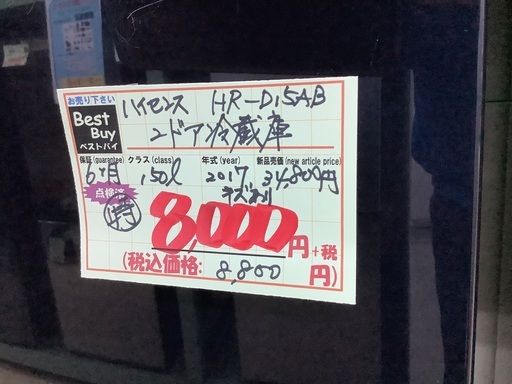 お売り下さい
Best
Buy
ベストバイ
ハイセンス HR-D15AB
2ドア冷蔵庫
保証(guarantee) クラス(class) 年式(year) 新品売価(new article price)
6ヶ月 150l 2017 34,800円
点検済 キズあり
特
8,000円+税
(税込価格: 8,800 円)